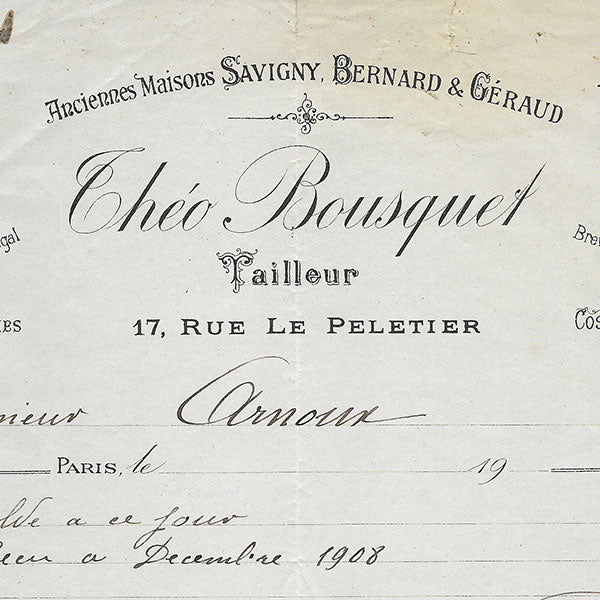 Anciennes Maisons SAVIGNY, BERNARD & GÉRAUD
Théo Bousquet
Tailleur
17, RUE LE PELETIER
Arnoux
PARIS, le 19
a ce jour
a Decembre 1908